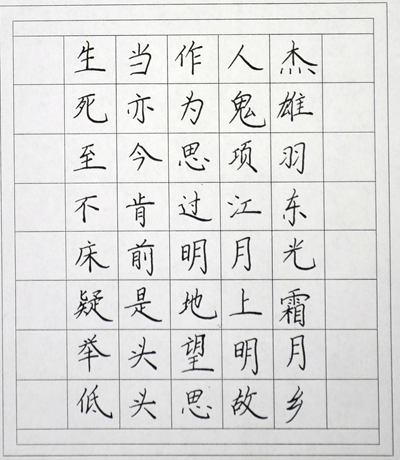 生当作人杰
死亦为鬼雄
至今思项羽
不肯过江东
床前明月光
疑是地上霜
举头望明月
低头思故乡